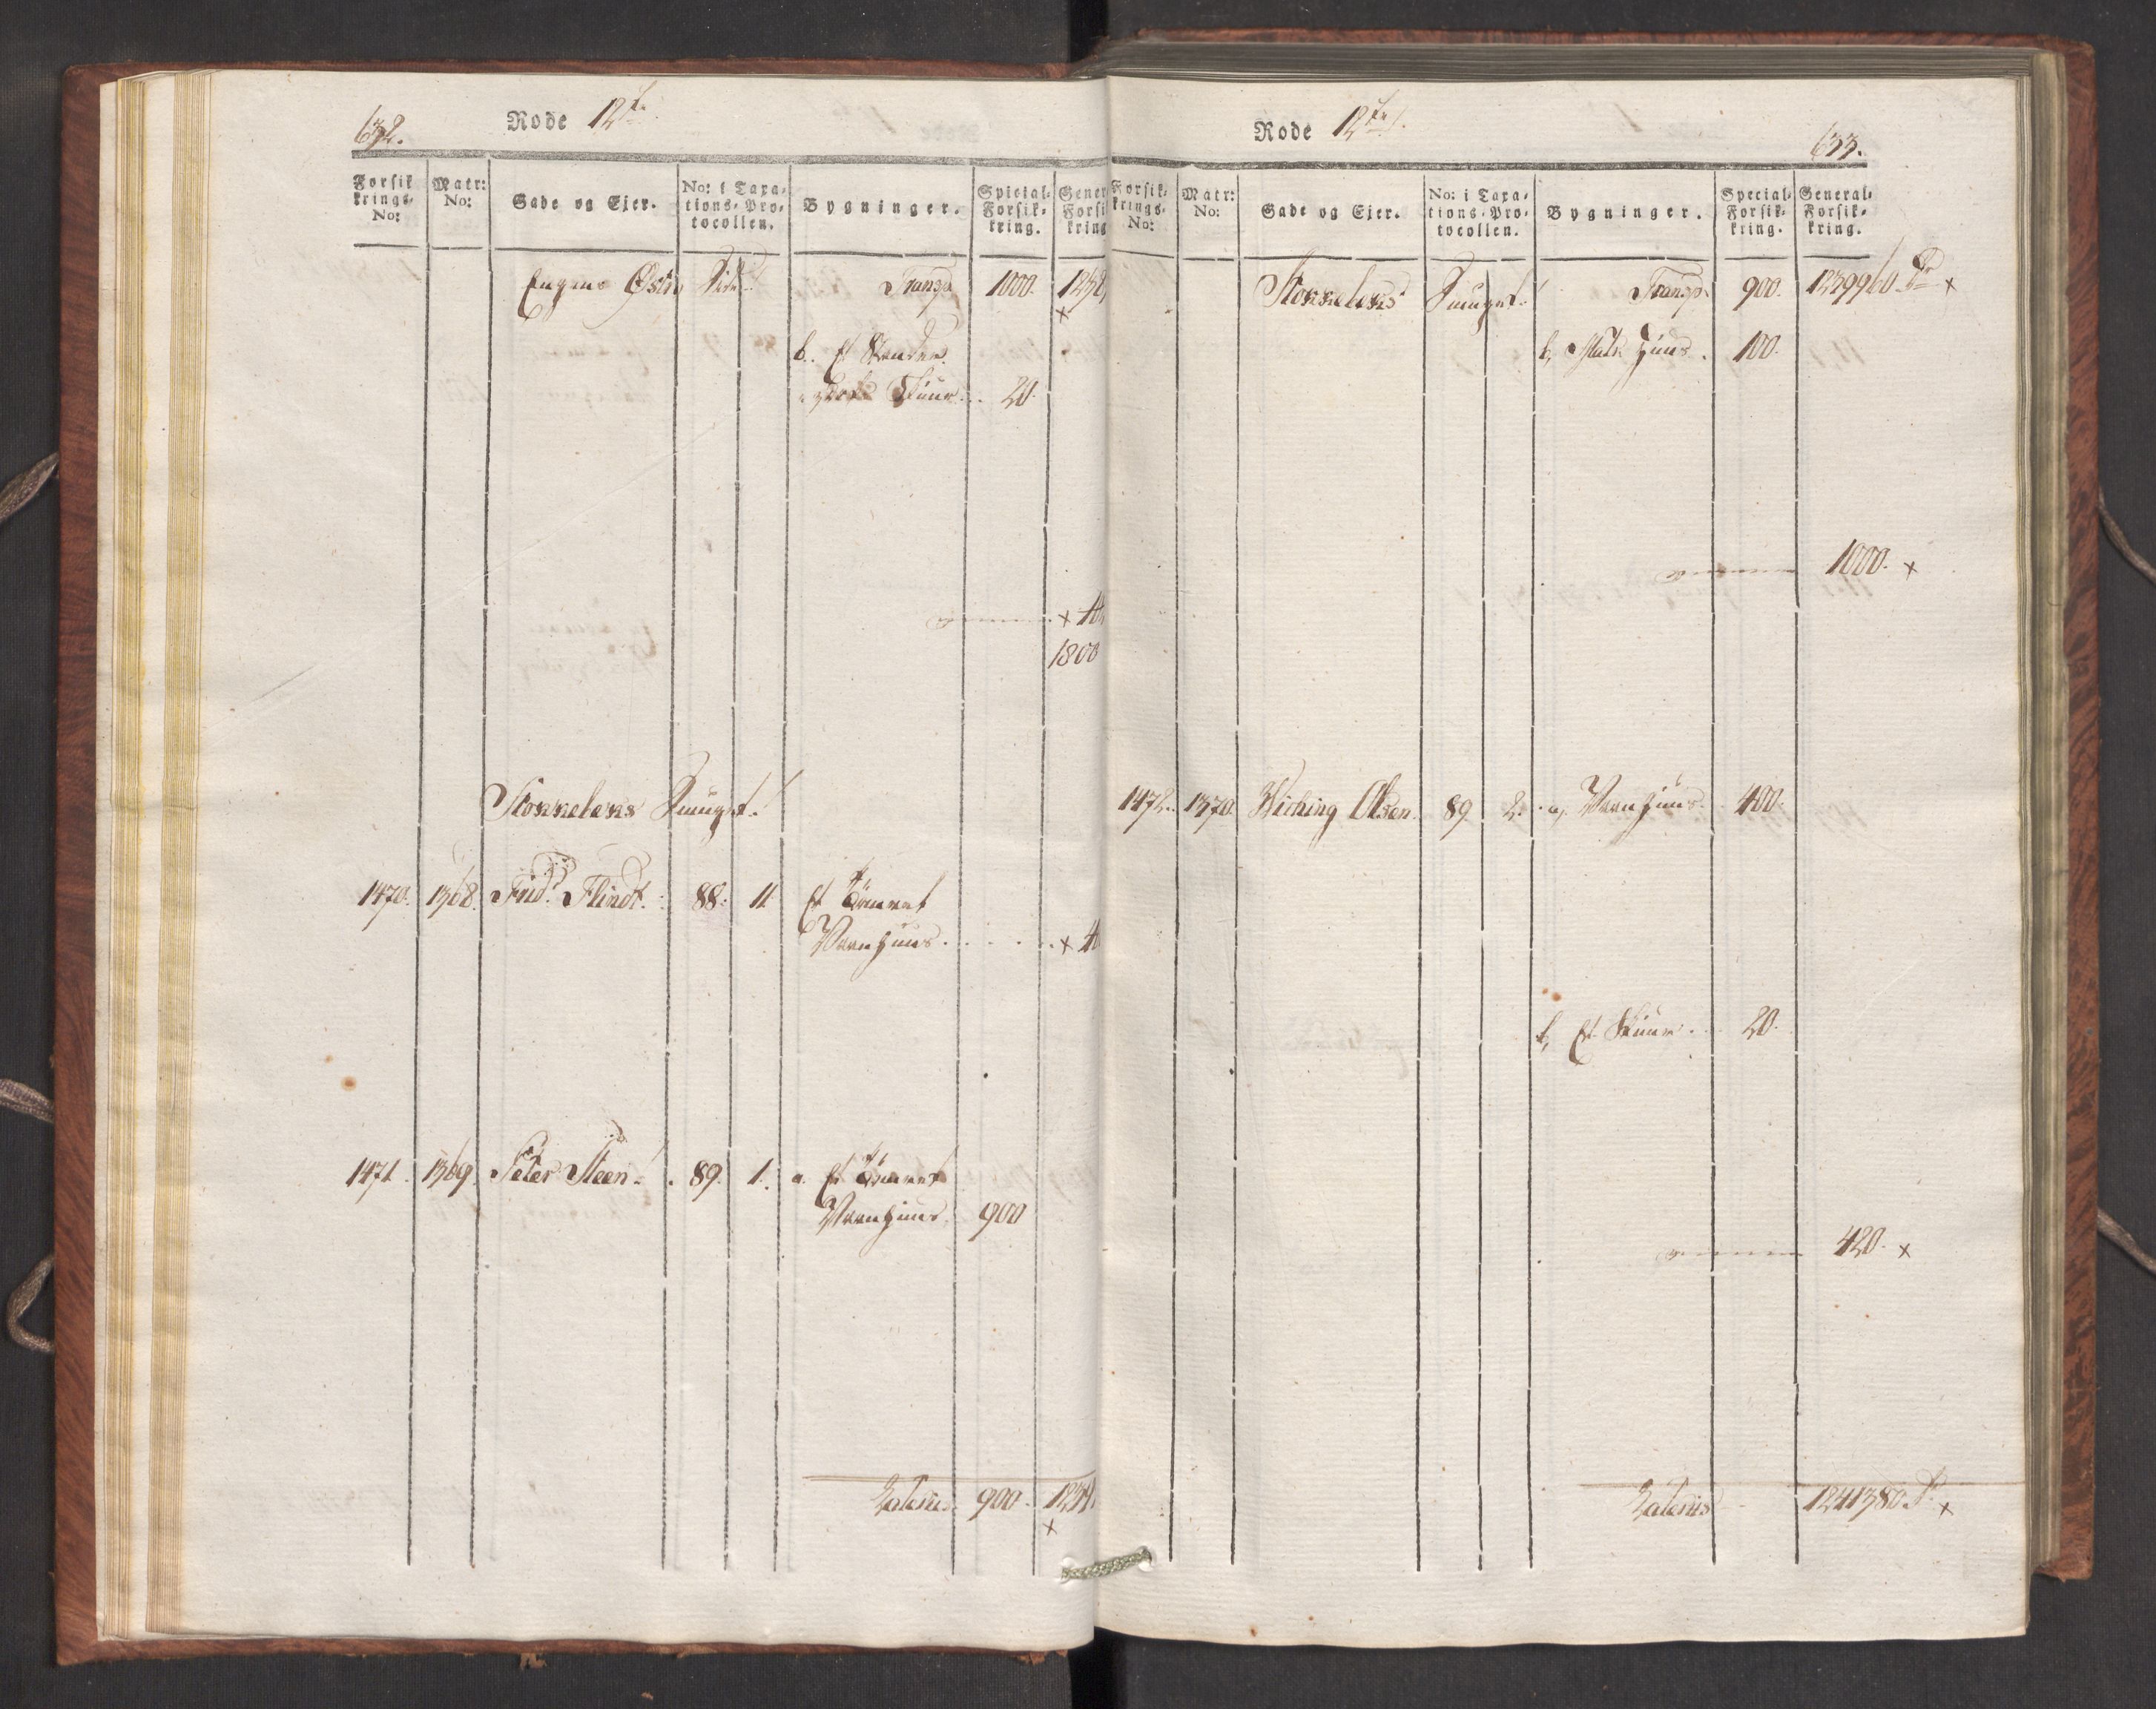 632.
Rode 12te
Forsikrings- No:
Matr: No:
Gade og Ejer.
No: i Taxations-Protocollen.
Bygninger.
Special-Forsikring.
Gener Forsi kring
Engens Østre Side Transp 1000. 1238
b. Et
Skuur 20.
× 10
1800
Stokkelens Smuget.
1470. 1368. Frid: Flindt. 88. 11. Et Tömret
Vaanhuus × 4
1471. 1369. Peter Steen. 89. 1. a. Et Tömret
Vaanhuus. 900
Lateris. 900. 1239
×
Rode 12te
633.
Forsikrings- No:
Matr: No:
Gade og Ejer.
No: i Taxations-Protocollen.
Bygninger.
Special-Forsikring.
General-Forsikring.
Stokkelens Smuget. Transp. 900. 1239960 ×
b, Huus. 100.
1000. ×
1472. 1370. Wiching Olsen. 89. 2. a, Vaanhuus. 400.
b, Et Skuur 20.
420. ×
Lateris 1241380 ×